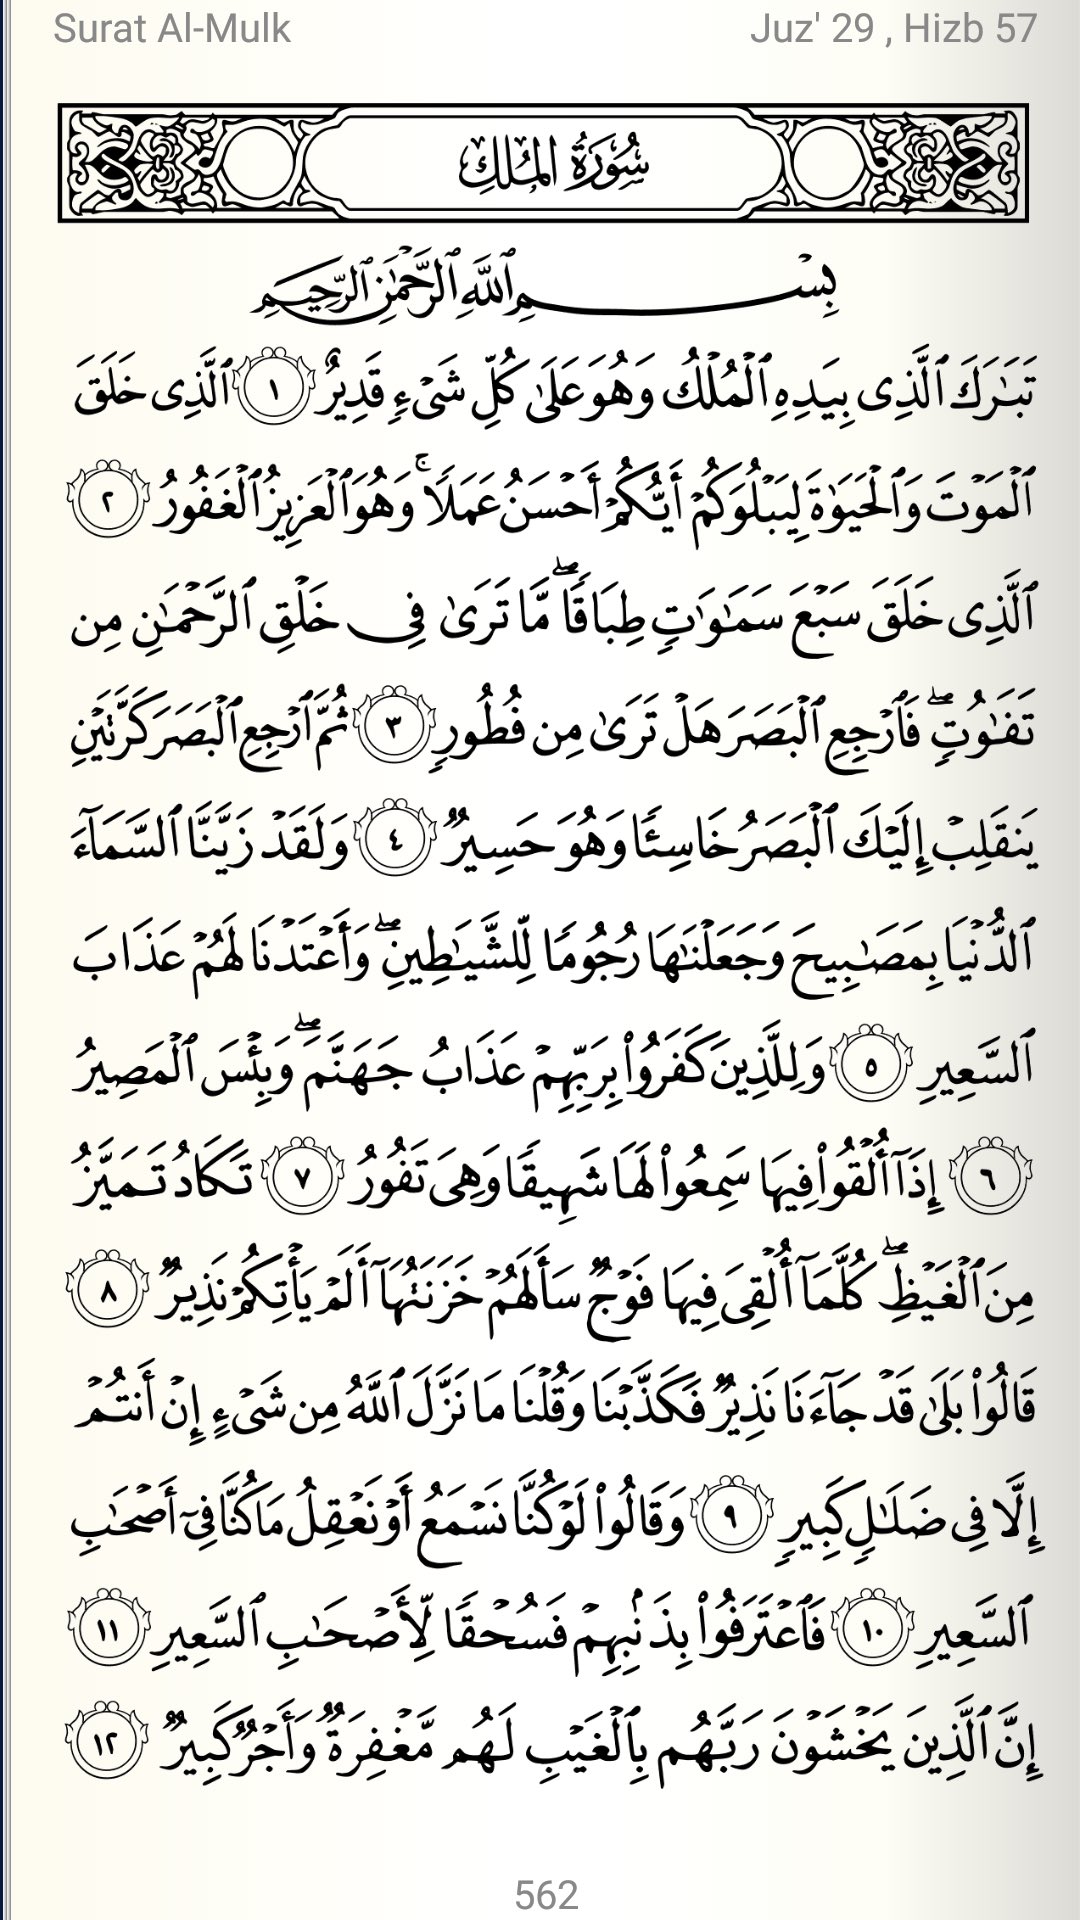 Surat Al-Mulk
Juz' 29 , Hizb 57
سُورَةُ المُلكِ
بِسْمِ ٱللَّهِ ٱلرَّحْمَٰنِ ٱلرَّحِيمِ
تَبَٰرَكَ ٱلَّذِى بِيَدِهِ ٱلْمُلْكُ وَهُوَ عَلَىٰ كُلِّ شَىْءٍ قَدِيرٌ ١ ٱلَّذِى خَلَقَ
ٱلْمَوْتَ وَٱلْحَيَوٰةَ لِيَبْلُوَكُمْ أَيُّكُمْ أَحْسَنُ عَمَلًا ۚ وَهُوَ ٱلْعَزِيزُ ٱلْغَفُورُ ٢
ٱلَّذِى خَلَقَ سَبْعَ سَمَٰوَٰتٍ طِبَاقًا ۖ مَّا تَرَىٰ فِى خَلْقِ ٱلرَّحْمَٰنِ مِن
تَفَٰوُتٍ ۖ فَٱرْجِعِ ٱلْبَصَرَ هَلْ تَرَىٰ مِن فُطُورٍ ٣ ثُمَّ ٱرْجِعِ ٱلْبَصَرَ كَرَّتَيْنِ
يَنقَلِبْ إِلَيْكَ ٱلْبَصَرُ خَاسِئًا وَهُوَ حَسِيرٌ ٤ وَلَقَدْ زَيَّنَّا ٱلسَّمَآءَ
ٱلدُّنْيَا بِمَصَٰبِيحَ وَجَعَلْنَٰهَا رُجُومًا لِّلشَّيَٰطِينِ ۖ وَأَعْتَدْنَا لَهُمْ عَذَابَ
ٱلسَّعِيرِ ٥ وَلِلَّذِينَ كَفَرُوا۟ بِرَبِّهِمْ عَذَابُ جَهَنَّمَ ۖ وَبِئْسَ ٱلْمَصِيرُ
٦ إِذَآ أُلْقُوا۟ فِيهَا سَمِعُوا۟ لَهَا شَهِيقًا وَهِىَ تَفُورُ ٧ تَكَادُ تَمَيَّزُ
مِنَ ٱلْغَيْظِ ۖ كُلَّمَآ أُلْقِىَ فِيهَا فَوْجٌ سَأَلَهُمْ خَزَنَتُهَآ أَلَمْ يَأْتِكُمْ نَذِيرٌ ٨
قَالُوا۟ بَلَىٰ قَدْ جَآءَنَا نَذِيرٌ فَكَذَّبْنَا وَقُلْنَا مَا نَزَّلَ ٱللَّهُ مِن شَىْءٍ إِنْ أَنتُمْ
إِلَّا فِى ضَلَٰلٍ كَبِيرٍ ٩ وَقَالُوا۟ لَوْ كُنَّا نَسْمَعُ أَوْ نَعْقِلُ مَا كُنَّا فِىٓ أَصْحَٰبِ
ٱلسَّعِيرِ ١٠ فَٱعْتَرَفُوا۟ بِذَنۢبِهِمْ فَسُحْقًا لِّأَصْحَٰبِ ٱلسَّعِيرِ ١١
إِنَّ ٱلَّذِينَ يَخْشَوْنَ رَبَّهُم بِٱلْغَيْبِ لَهُم مَّغْفِرَةٌ وَأَجْرٌ كَبِيرٌ ١٢
562